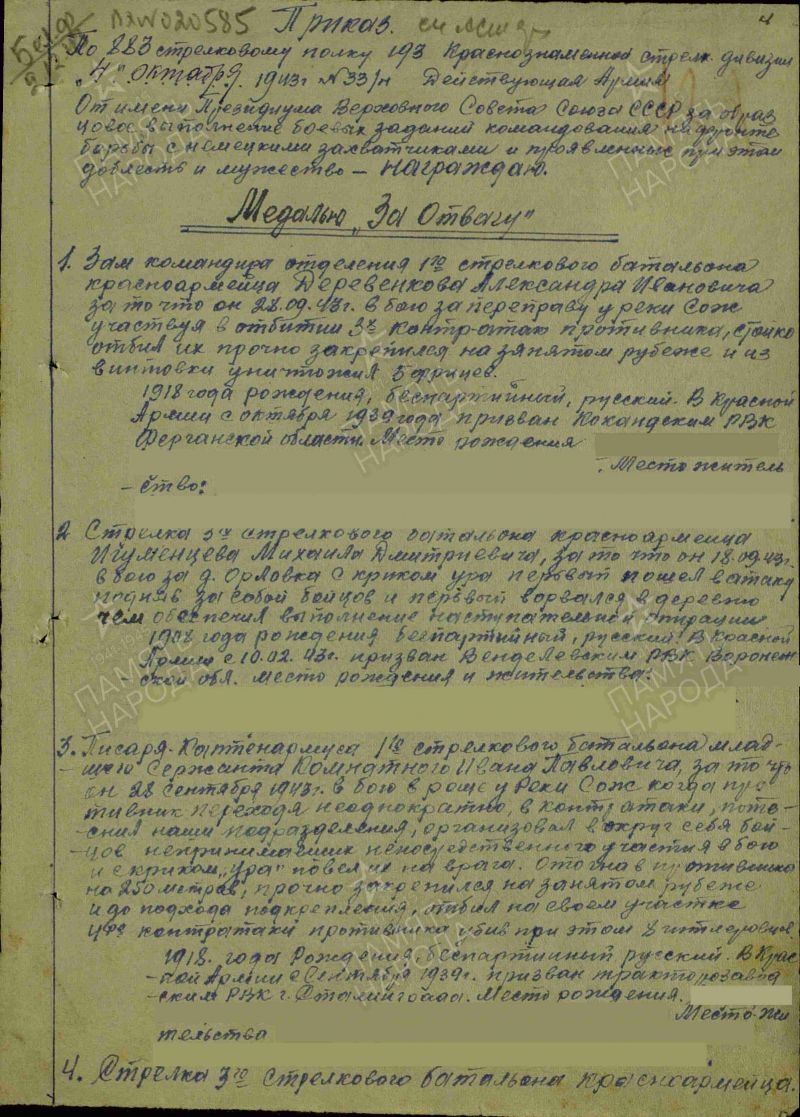 Приказ.
По 883 стрелковому полку 193 Краснознаменной стрелк. дивизии
"4" октября 1943г №33/н Действующая Армия
От имени Президиума Верховного Совета Союза СССР за образ
цовое выполнение боевых заданий командования на фронте
борьбы с немецкими захватчиками и проявленные при этом
доблесть и мужество – награждаю.
Медалью "За Отвагу"
1. Зам командира отделения 1го стрелкового батальона
красноармейца Деревенкова Александра Ивановича
за то что он 28.09.43г. в бою за переправу у реки Сож
участвуя в отбитии 3х контр-атак противника, стойко
отбил их прочно закрепился на занятом рубеже и из
винтовки уничтожил 5 фрицев.
1918 года рождения, беспартийный, русский. В Красной
Армии с октября 1939 года призван Кокандским РВК
Ферганской области. Место рождения
Место житель
-ство:
2 Стрелка 3го стрелкового батальона красноармейца
Игуменцева Михаила Дмитриевича, за то что он 18.09.43г.
в бою за д. Орловка с криком ура первый пошел в атаку
подняв за собой бойцов и первый ворвался в деревню
чем обеспечил выполнение наступательной операции
1908 года рождения беспартийный, русский. В Красной
Армии с 10.02.43г. призван Венделевским РВК Воронеж
-ской обл. место рождения и жительства:
3. Писаря-Каптенармуса 1го стрелкового батальона млад-
-шего Сержанта Комнатного Ивана Павловича, за то что
он 28 сентября 1943г. в бою в роще у реки Сож когда про
тивник переходя неоднократно, в контратаки, поте-
-снил наши подразделения, организовал вокруг себя бой-
-цов непринимавших непосредственного участия в бою
и с криком "ура" повел их на врага. Отогнав противника
на 250 метров, прочно закрепился на занятом рубеже
и до подхода подкрепления, отбил на своем участке
контратаки противника убив при этом 8 гитлеровцев.
1918. года Рождения, беспартийный русский. В Крас
-ной Армии с Сентября 1939г. призван тракторозавод
-ским РВК г. Сталинграда. Место рождения.
Место жи
тельства
4. Стрелка 3го стрелкового батальона красноармейца.
ПАМЯТЬ
НАРОДА